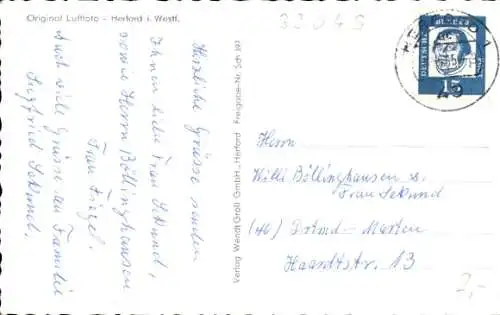 Original Luftfoto - Herford i. Westf.
Herzliche Grüsse senden
Ihnen liebe Frau Sekund,
sowie Herrn Böllinghausen
Frau
Auch viele Grüsse an Familie
Siegfried Sekund.
Verlag Wendt Groll GmbH., Herford Freigabe-Nr. Sch 197
DEUTSCHE BUNDESPOST
15
Herrn
Willi Böllinghausen u.
Frau Sekund
(46) Dortmd - Marten
Haardtstr. 13
2,-